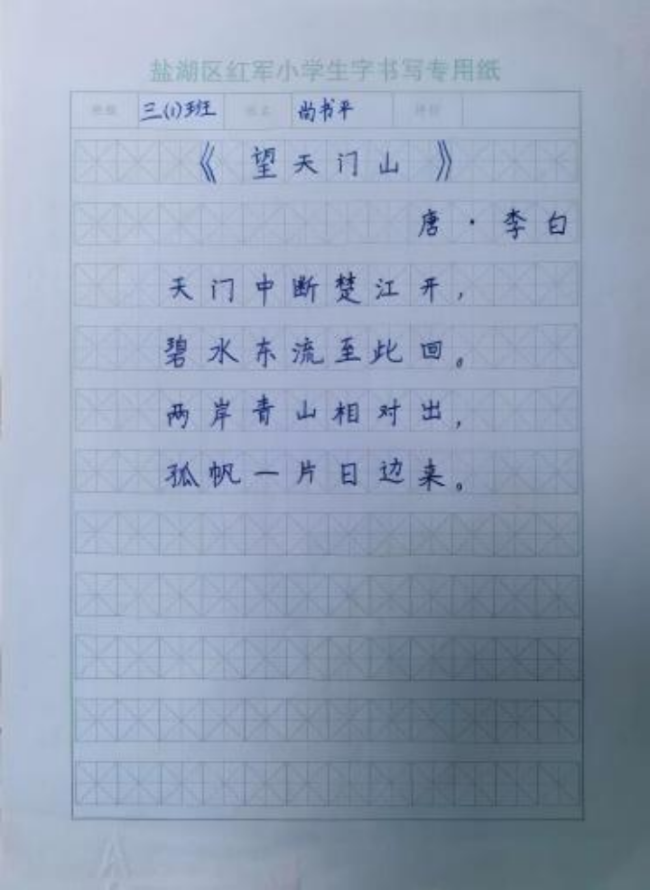 盐湖区红军小学生字书写专用纸
班级 三(1)班 姓名 尚书平
《望天门山》
唐·李白
天门中断楚江开,
碧水东流至此回。
两岸青山相对出,
孤帆一片日边来。